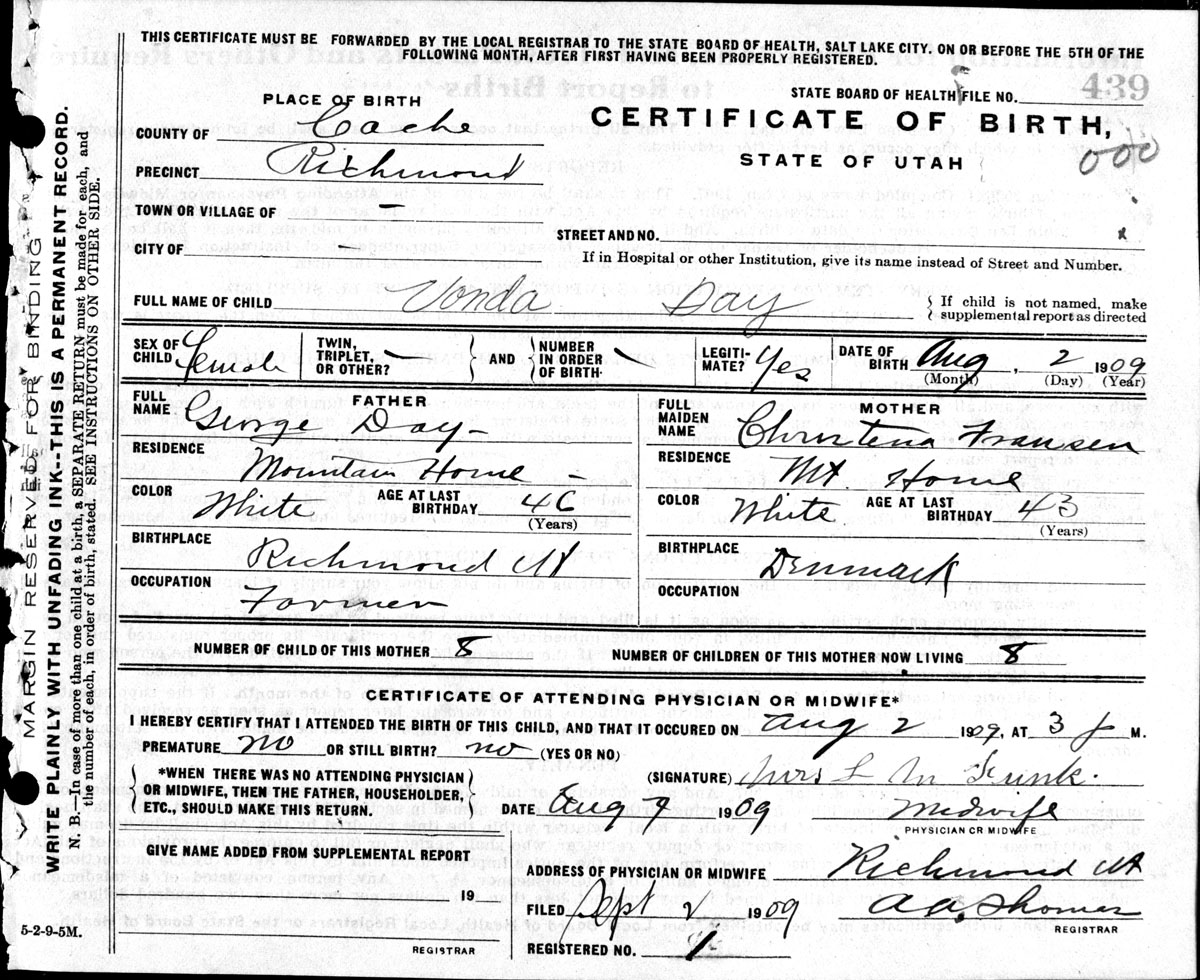 THIS CERTIFICATE MUST BE FORWARDED BY THE LOCAL REGISTRAR TO THE STATE BOARD OF HEALTH, SALT LAKE CITY. ON OR BEFORE THE 5TH OF THE
FOLLOWING MONTH, AFTER FIRST HAVING BEEN PROPERLY REGISTERED.
STATE BOARD OF HEALTH FILE NO. 439
PLACE OF BIRTH
CERTIFICATE OF BIRTH,
STATE OF UTAH
000
COUNTY OF Cache
PRECINCT Richmond
TOWN OR VILLAGE OF –
STREET AND NO.
CITY OF –
If in Hospital or other Institution, give its name instead of Street and Number.
FULL NAME OF CHILD Vonda Day
{ If child is not named, make
supplemental report as directed
SEX OF CHILD Female
TWIN, TRIPLET, OR OTHER? } AND { NUMBER IN ORDER OF BIRTH.
LEGITIMATE? Yes
DATE OF BIRTH Aug, 2 1909
(Month) (Day) (Year)
FATHER
FULL NAME George Day
RESIDENCE
Mountain Home –
COLOR White AGE AT LAST BIRTHDAY 46
(Years)
BIRTHPLACE
Richmond Ut
OCCUPATION
Farmer
MOTHER
FULL MAIDEN NAME Christena Fransen
RESIDENCE
Mt Home
COLOR White AGE AT LAST BIRTHDAY 43
(Years)
BIRTHPLACE
Denmark
OCCUPATION
NUMBER OF CHILD OF THIS MOTHER 8 NUMBER OF CHILDREN OF THIS MOTHER NOW LIVING 8
CERTIFICATE OF ATTENDING PHYSICIAN OR MIDWIFE*
I HEREBY CERTIFY THAT I ATTENDED THE BIRTH OF THIS CHILD, AND THAT IT OCCURED ON Aug 2 1909, AT 3 P M.
PREMATURE no OR STILL BIRTH? no (YES OR NO)
{ *WHEN THERE WAS NO ATTENDING PHYSICIAN
OR MIDWIFE, THEN THE FATHER, HOUSEHOLDER,
ETC., SHOULD MAKE THIS RETURN. }
(SIGNATURE) Mrs L M Funk.
DATE Aug 9 1909 Midwife
PHYSICIAN OR MIDWIFE
GIVE NAME ADDED FROM SUPPLEMENTAL REPORT
19
REGISTRAR
ADDRESS OF PHYSICIAN OR MIDWIFE Richmond Ut
FILED Sept 2 1909 A A Thomas
REGISTRAR
REGISTERED NO. 1
5-2-9-5M.
MARGIN RESERVED FOR BINDING
WRITE PLAINLY WITH UNFADING INK--THIS IS A PERMANENT RECORD.
N. B.—In case of more than one child at a birth, a SEPARATE RETURN must be made for each, and
the number of each, in order of birth, stated. SEE INSTRUCTIONS ON OTHER SIDE.